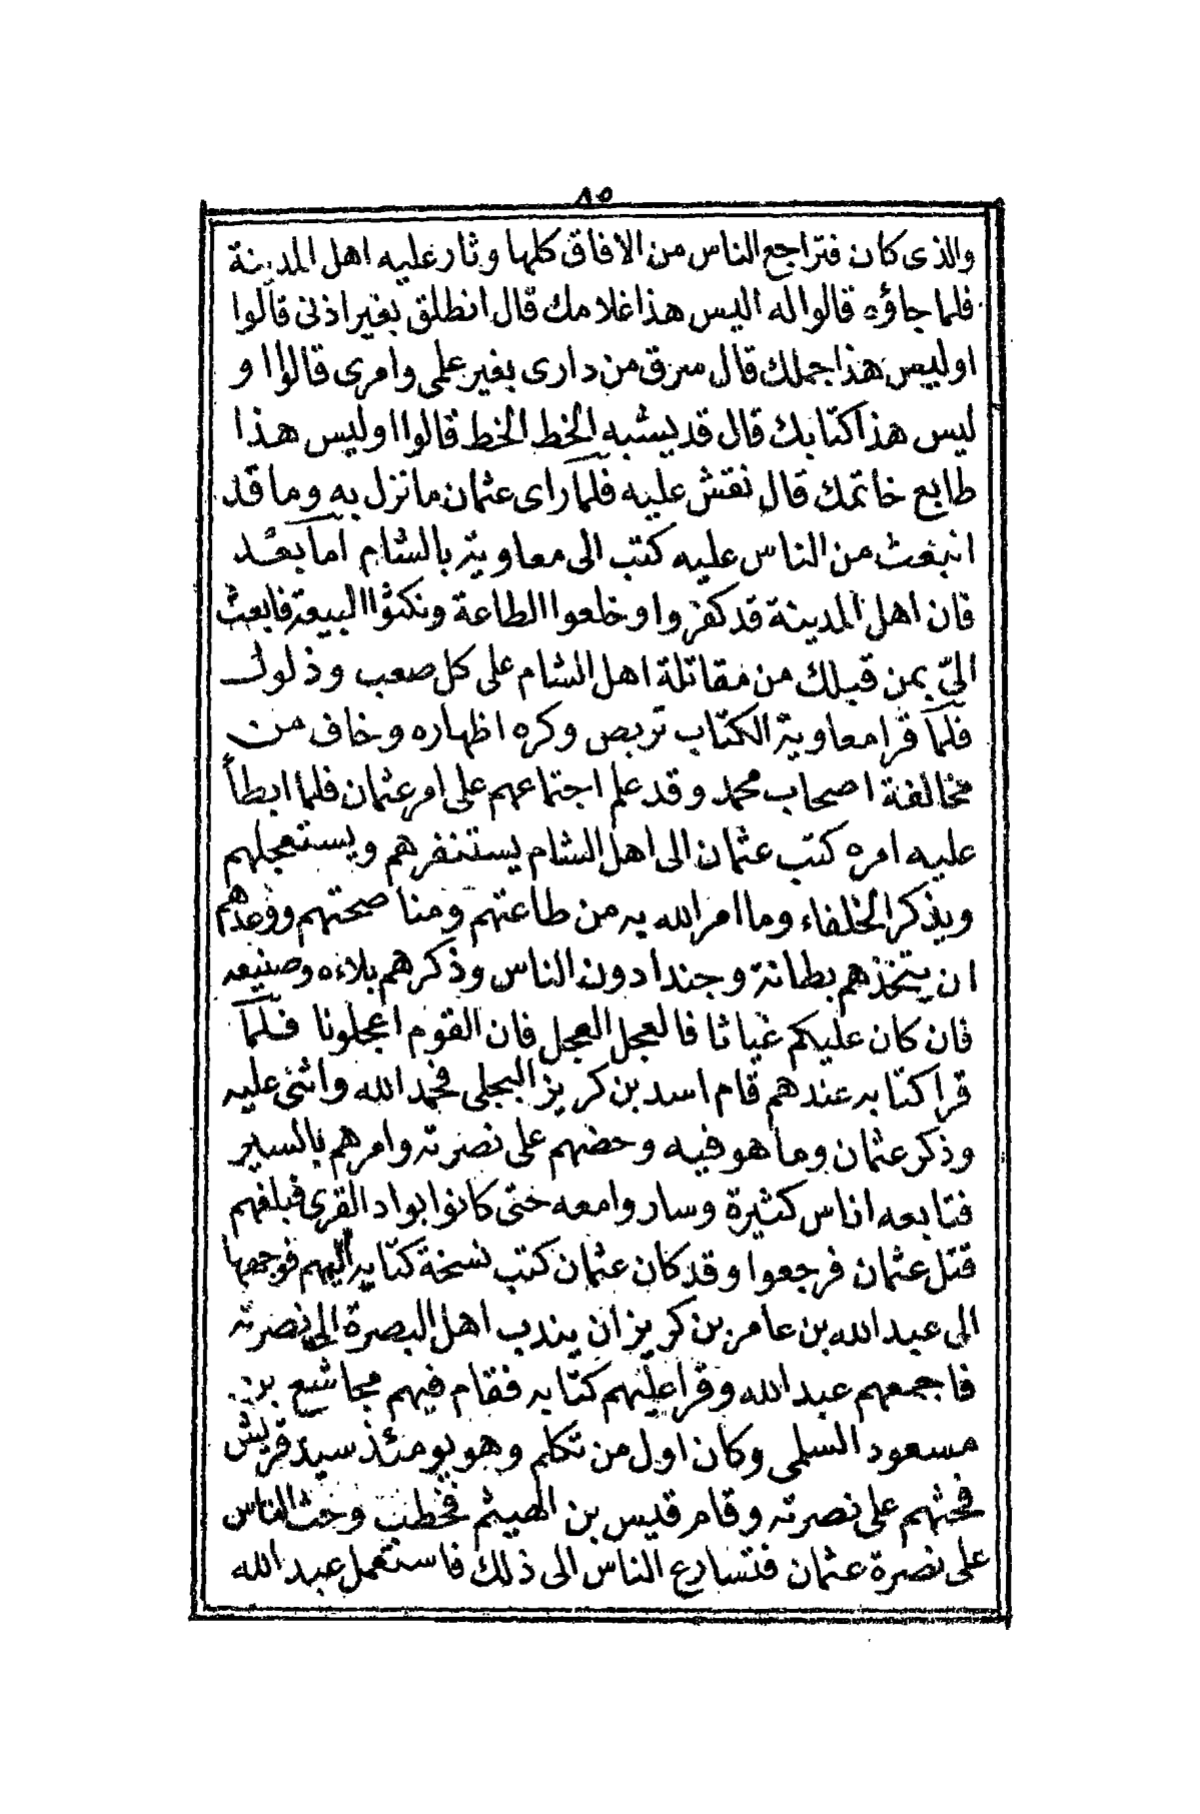 ٨٥
والذى كان فتراجع الناس من الافاق كلها وثار عليه اهل المدينة
فلما جاؤه قالوا له اليس هذا غلامك قال انطلق بغير اذنى قالوا
اوليس هذا جملك قال سرق من دارى بغير علمى وامرى قالوا ا و
ليس هذا كتابك قال قد يشبه الخط الخط قالوا اوليس هذا
طابع خاتمك قال نقش عليه فلما راى عثمان ما نزل به وما قد
انبعث من الناس عليه كتب الى معاوية بالشام اما بعد
فان اهل المدينة قد كفروا وخلعوا الطاعة ونكثوا البيعة فابعث
الىّ بمن قبلك من مقاتلة اهل الشام على كل صعب وذلول
فلما قرا معاوية الكتاب تربص وكره اظهاره وخاف من
مخالفة اصحاب محمد وقد علم اجتماعهم على امر عثمان فلما ابطأ
عليه امره كتب عثمان الى اهل الشام يستنفرهم ويستعجلهم
ويذكر الخلفاء وما امر الله به من طاعتهم ومناصحتهم ووعدهم
ان يتخذهم بطانة وجندا دون الناس وذكرهم بلاءه وصنيعه
فان كان عليكم غياثا فالعجل العجل فان القوم اعجلونا فلما
قرا كتابه عندهم قام اسد بن كريز البجلى فحمد الله واثنى عليه
وذكر عثمان وما هو فيه وحضهم على نصرته وامرهم بالسير
فتابعه اناس كثيرة وساروا معه حتى كانوا بواد القرى فبلغهم
قتل عثمان فرجعوا وقد كان عثمان كتب نسخة كتابه اليهم فوجهها
الى عبد الله بن عامر بن كريز ان يندب اهل البصرة الى نصرته
فاجمعهم عبد الله وقرا عليهم كتابه فقام فيهم مجاشع بن
مسعود السلمى وكان اول من تكلم وهو يومئذ سيد قريش
فحثهم على نصرته وقام قيس بن الهيثم فخطب وحث الناس
على نصرة عثمان فتسارع الناس الى ذلك فاستعمل عبد الله